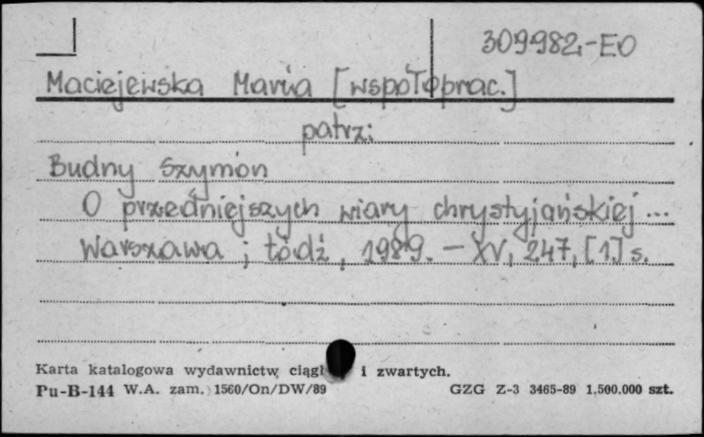 309982-EO
Maciejewska Maria [współoprac.]
patrz:
Budny Szymon
O przedniejszych wiary chrystyjańskiej ...
Warszawa ; Łódź, 1989. – XV, 247, [1] s.
Karta katalogowa wydawnictw ciągł i zwartych.
Pu-B-144 W.A. zam. 1560/On/DW/89 GZG Z-3 3465-89 1.500.000 szt.